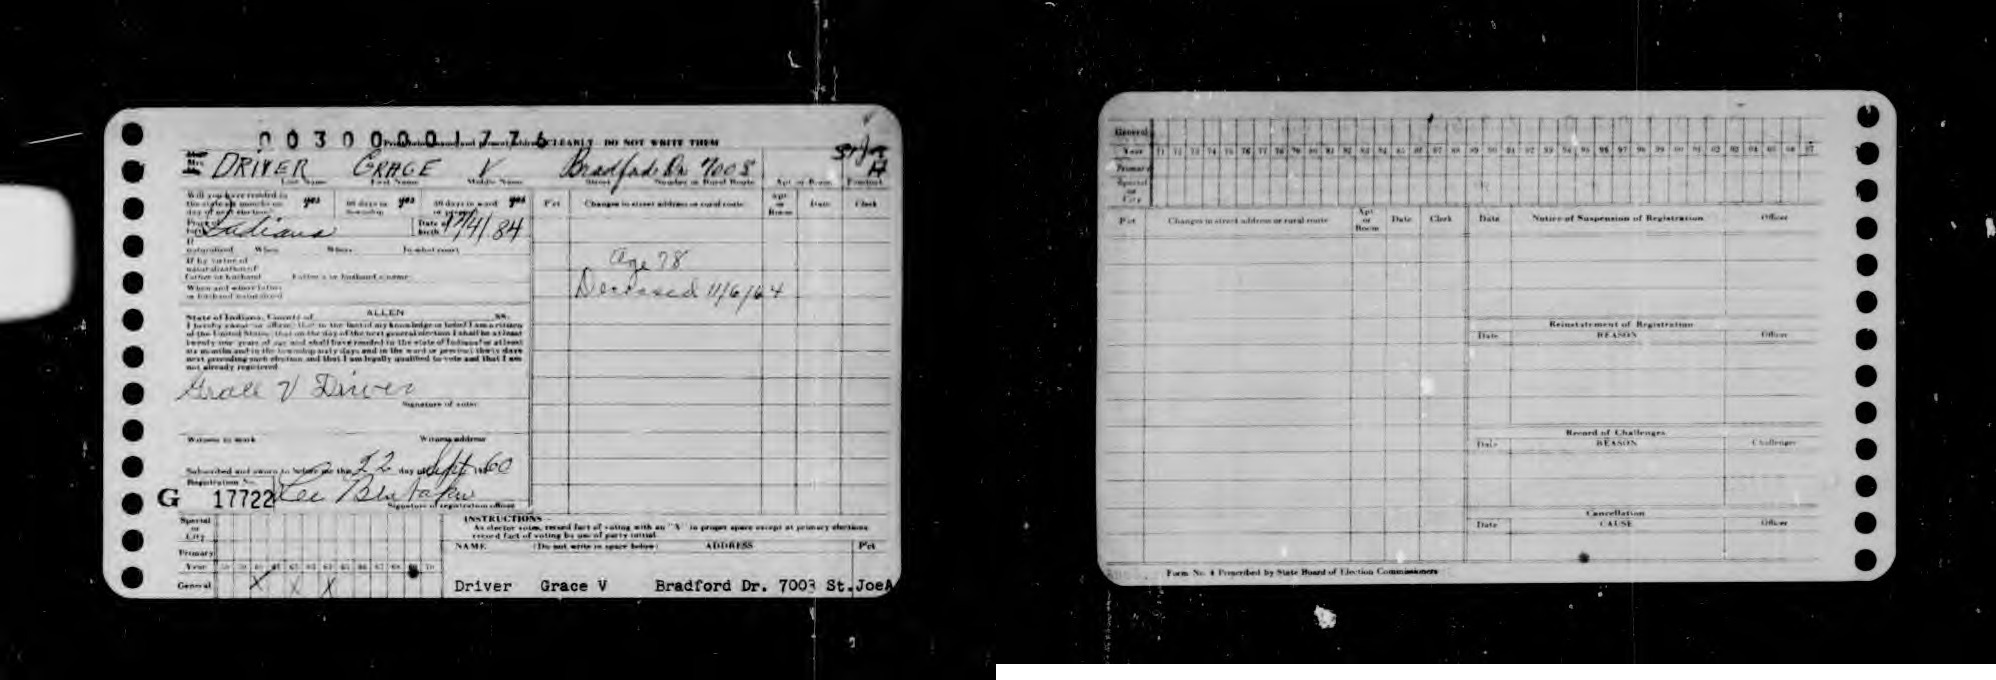 00300001776
CLEARLY DO NOT WRITE THEM
Mrs. DRIVER GRACE V Bradford Dr. 7003 St Joe A
Last Name First Name Middle Name Street Number or Rural Route Apt or Room Precinct
Will you have resided in
the state six months on yes 60 days in yes 30 days in ward yes
day of next election? township or precinct
Pct Changes in street address or rural route Apt or Room Date Clerk
Indiana Date of birth /4/84
If
naturalized When Where In what court
If by virtue of
naturalization of
father or husband Father's or husband's name
When and where father
or husband naturalized
Age 78
Deceased 11/6/64
State of Indiana, County of ALLEN SS.
I hereby swear or affirm, that to the best of my knowledge or belief I am a citizen
of the United States, that on the day of the next general election I shall be at least
twenty-one years of age and shall have resided in the state of Indiana for at least
six months and in the township sixty days and in the ward or precinct thirty days
next preceding such election and that I am legally qualified to vote and that I am
not already registered
Grace V Driver
Signature of voter
Witness to mark Witness address
Subscribed and sworn to before me this 22 day of Sept 1960
Registration No.
G 17722 Lee
Signature of registration officer
Special
or
City
Primary
Year
General X X X
INSTRUCTIONS—
As elector votes, record fact of voting with an "X" in proper space except at primary elections
record fact of voting by use of party initial.
NAME (Do not write in space below) ADDRESS Pct
Driver Grace V Bradford Dr. 7003 St.JoeA
General
Year 71 72 73 74 75 76 77 78 79 80 81 82 83 84 85 86 87 88 89 90 91 92 93 94 95 96 97 98 99 00 01 02 03 04 05 06 07
Primary
Special
or
City
Pct Changes in street address or rural route Apt or Room Date Clerk
Date Notice of Suspension of Registration Officer
Reinstatement of Registration
Date REASON Officer
Record of Challenges
Date REASON Challenger
Cancellation
Date CAUSE Officer
Form No. 4 Prescribed by State Board of Election Commissioners